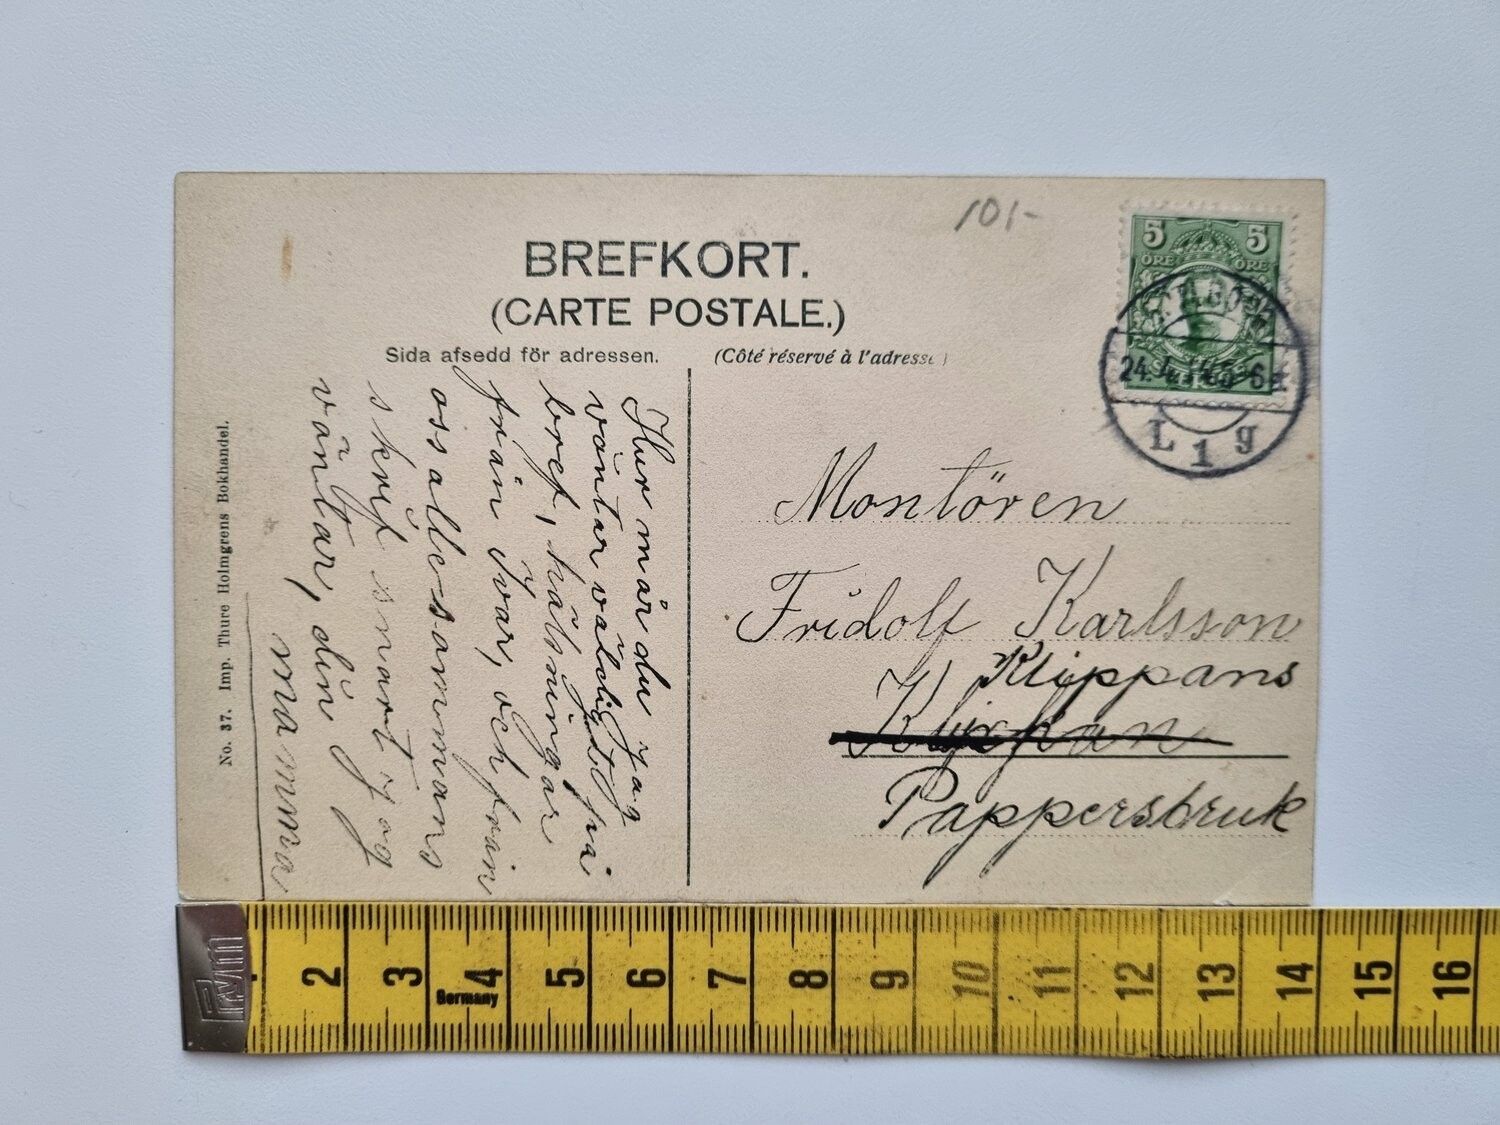 101-
BREFKORT.
(CARTE POSTALE.)
Sida afsedd för adressen.
(Côté réservé à l'adresse)
5 5
ÖRE ÖRE
24.4.14
L 1 g
Montören
Fridolf Karlsson
Klippans
Klippan
Pappersbruk
Hur mår du jag
väntar väldigt på
bref, hälsningar
från Ivar, och från
oss allesammans
skrif snart jag
väntar, din
mamma
No. 37. Imp. Thure Holmgrens Bokhandel.
Prym
2 3 4 5 6 7 8 9 10 11 12 13 14 15 16
Germany